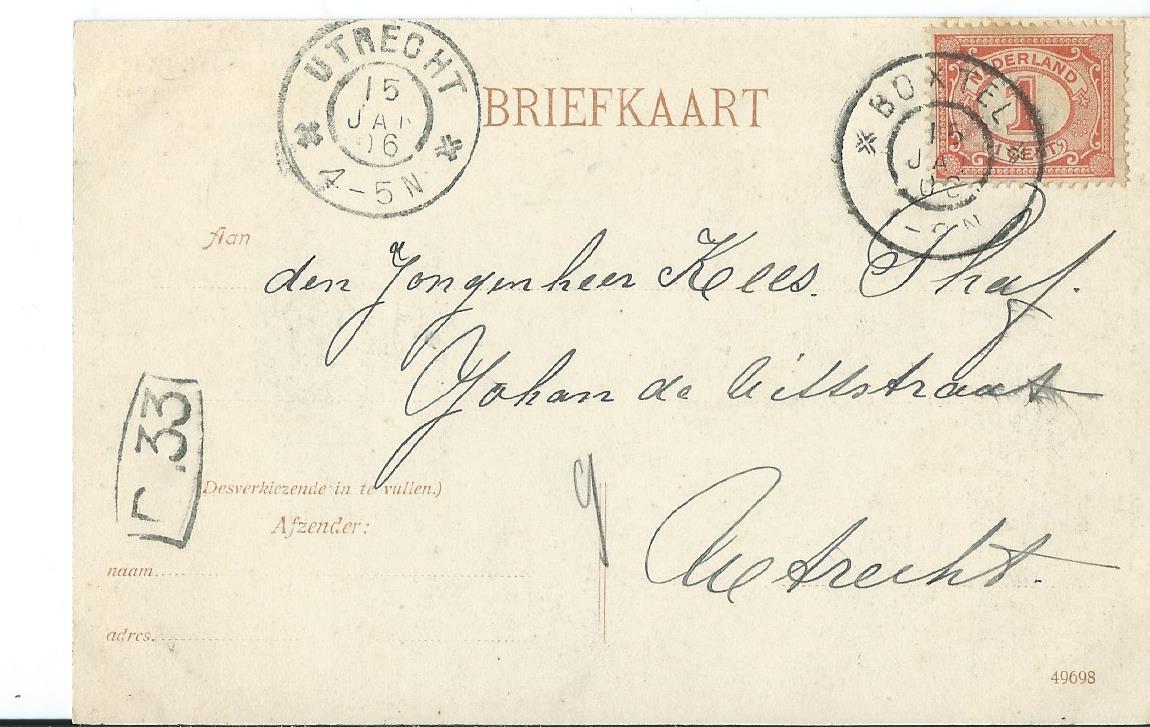 UTRECHT
15
JAN
06
4-5N
BRIEFKAART
BOXTEL
15
JA
06
NEDERLAND
1
1 CENT
Aan
den Jongenheer Kees.
Johan de Wittstraat
Utrecht.
33
(Desverkiezende in te vullen.)
Afzender:
naam
adres.
49698